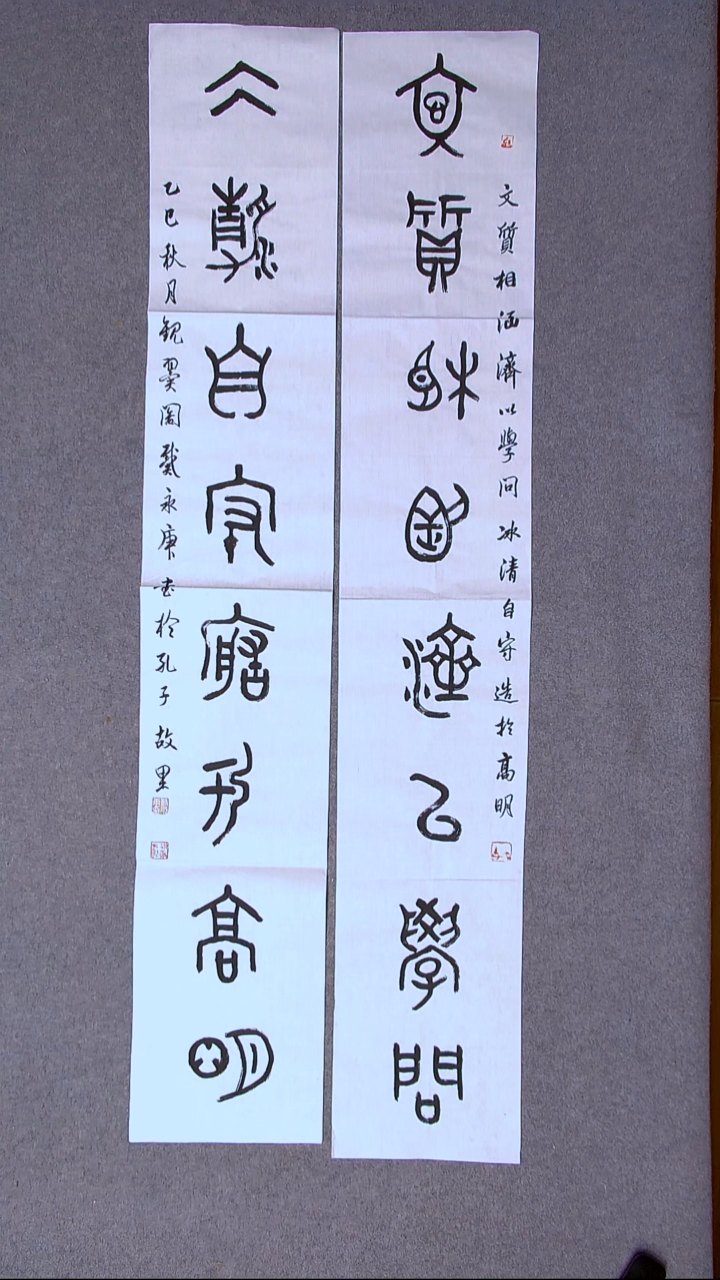 文質相涵濟以學問 冰清自守造於高明
文質相涵濟以學問
冰清自守造於高明
乙巳秋月觀翼閣龔永庚書於孔子故里